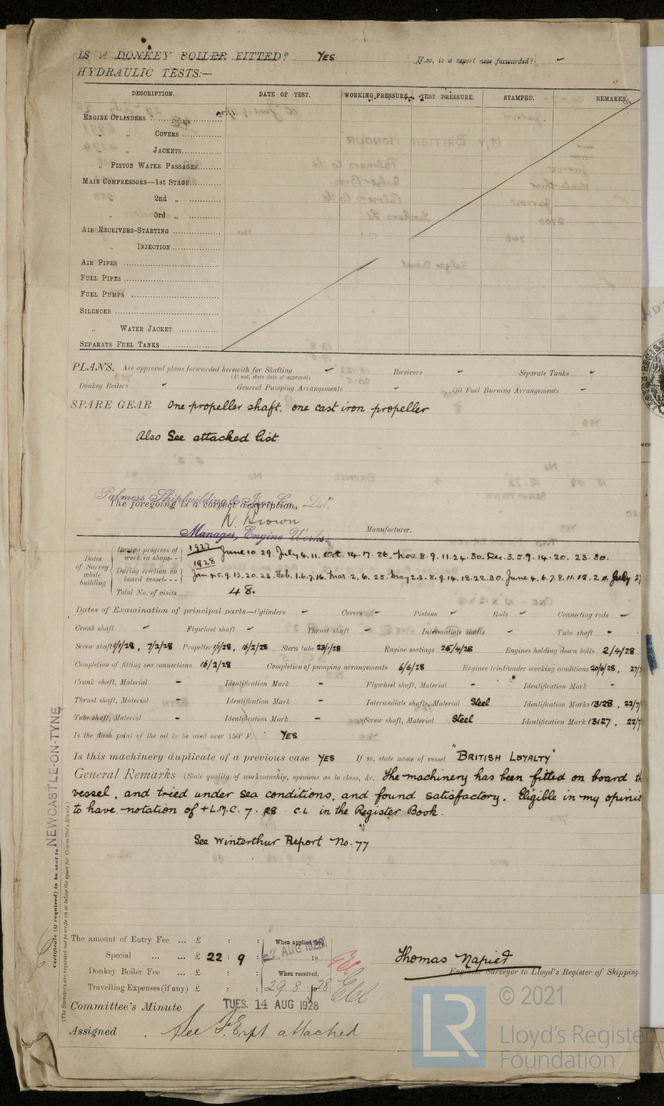 IS A DONKEY BOILER FITTED? Yes If so, is a report now forwarded? -
HYDRAULIC TESTS:—
DESCRIPTION. DATE OF TEST. WORKING PRESSURE. TEST PRESSURE. STAMPED. REMARKS
ENGINE CYLINDERS
" " COVERS
" JACKETS
" PISTON WATER PASSAGES
MAIN COMPRESSORS—1st STAGE
" 2nd "
" 3rd "
AIR RECEIVERS-STARTING
" INJECTION
AIR PIPES
FUEL PIPES
FUEL PUMPS
SILENCER
" WATER JACKET
SEPARATE FUEL TANKS
PLANS. Are approved plans forwarded herewith for Shafting Receivers Separate Tanks
(If not, state date of approval)
Donkey Boilers General Pumping Arrangements Oil Fuel Burning Arrangements
SPARE GEAR One propeller shaft, one cast iron propeller
Also See attached list
Palmers Shipbuilding & Iron Co. Ltd.
The foregoing is a correct description,
N. Brown
Manager, Engine Works. Manufacturer.
Dates of Survey while building
During progress of work in shops-- 1927 June 10. 29. July 4. 11. Oct 14. 17. 26. Nov. 8. 9. 11. 24. 30. Dec. 3. 5. 9. 14. 20. 23. 30.
During erection on board vessel--- 1928 Jan. 4. 5. 9. 13. 20. 23. Feb. 1. 6. 7. 16. Mar. 2. 6. 28. May 2. 3. 8. 9. 14. 18. 22. 30. June 4. 6. 7. 8. 11. 18. 20. July 2
Total No. of visits 48.
Dates of Examination of principal parts—Cylinders Covers Pistons Rods Connecting rods
Crank shaft Flywheel shaft Thrust shaft Intermediate shafts Tube shaft
Screw shaft 9/1/28, 7/2/28 Propeller 9/1/28, 16/2/28 Stern tube 23/1/28 Engine seatings 25/4/28 Engines holding down bolts 2/4/28
Completion of fitting sea connections 16/2/28 Completion of pumping arrangements 6/6/28 Engines tried under working conditions 20/6/28, 27/
Crank shaft, Material Identification Mark Flywheel shaft, Material Identification Mark
Thrust shaft, Material Identification Mark Intermediate shafts, Material Steel Identification Marks 13128, 23/
Tube shaft, Material Identification Mark Screw shaft, Material Steel Identification Mark 13127, 22/
Is the flash point of the oil to be used over 150° F. Yes
Is this machinery duplicate of a previous case Yes If so, state name of vessel "BRITISH LOYALTY"
General Remarks (State quality of workmanship, opinions as to class, &c. The machinery has been fitted on board
vessel, and tried under sea conditions, and found satisfactory. Eligible in my opini
to have notation of + L.M.C. 7. 28 C L in the Register Book.
See Winterthur Report No. 77
NEWCASTLE-ON-TYNE
Certificate (if required) to be sent to
The amount of Entry Fee ... £ : : When applied for,
Special ... ... £ 22 : 9 : 27 AUG 1928
Donkey Boiler Fee ... £ : : When received,
Travelling Expenses (if any) £ : : 29. 8. 1928
Thomas Napier
Engineer Surveyor to Lloyd's Register of Shipping.
Committee's Minute TUES. 14 AUG 1928
Assigned See F.E. rpt attached
LR © 2021
Lloyd's Register
Foundation